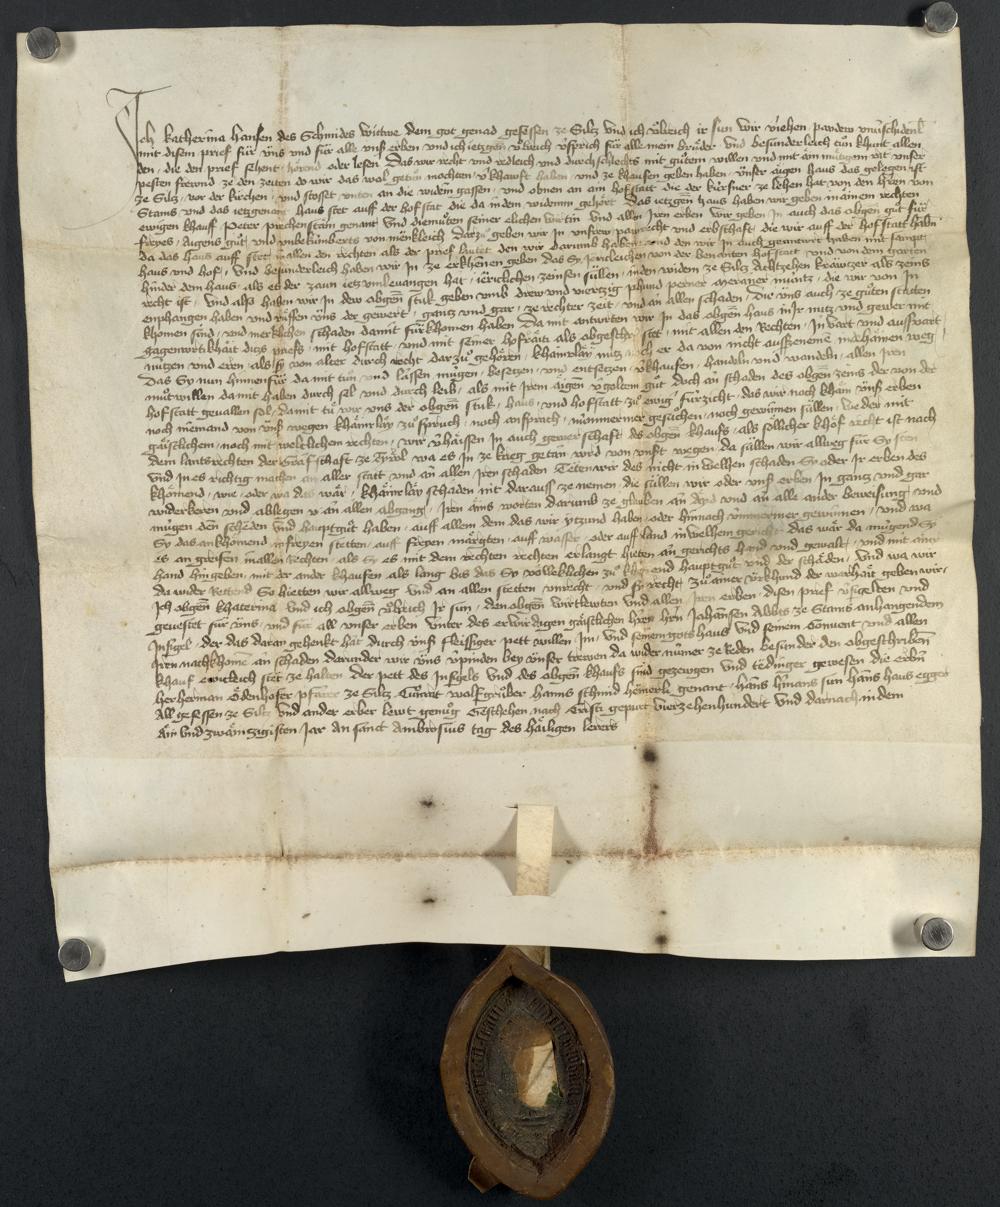 Ich Katherina Hansen des Schmides witwe dem got genad gesessen ze Silz und ich Ulreich ir sun wir viehen
mit disem prief für uns und für alle unser erben und ich ietzgen Ulreich v̈sprich für alle mein brüder und besunderleich tun khunt allen
den, die den prief sehent, hörend oder lesen Das wir recht und redleich und durchslechts mit gutem willen und mit ain mutigem rat unser
pesten frewnd ze den zeiten do wir das wol getun mochten v̈khawft haben und ze khaufen geben haben unser aigen haus das gelegen ist
ze Silz, vor der kirchen und stosset unten an die widem gassen, und obnen an ain hofstatt die der kürsner ze lehen hat von den hren von
Stams und das ietzgenant haus stet auff der hofstat die da in den widemm gehört Das ietzgen haus haben wir geben in ainem rechten
ewigen khauff Peter pirchenstain genant und diemuten seiner elichen wirtin und allen iren erben wir geben in auch das obgen gut für
freyes, aigens gut, und unbekümberts von menkleich darzu geben wir in unsrew paurecht und erbschaft, die wir auff der hofstatt habn
da das haus auff stet in allen den rechten als der prief lautet den wir darumb haben und den wir in auch geantwrt haben mit sampt
haus und hof, und besunderleich haben wir in ze erkhennen geben das Sy jerleichen von der benanten hofstatt und von dem garten
hinder dem haus, als es der zaun ietz umbevangen hat, ierlichen zeinsen sullen, in den widem ze Silz Achtzehen kräwtzer als zeins
recht ist, und also haben wir in dew obgen stuk geben umb drew und vierzig phund perner meraner müntz, die wir von in
enphangen haben und v̈iessen uns der gewert, ganz und gar, ze rechter zeit, und an allen schaden, die uns auch ze guten staten
khomen sind, und merklichen schaden damit fürkhomen haben Da mit antwrten wir in das obgen haus in Ir nutz und gewer mit
gagenwrtikhait ditz priefs, mit hofstatt und mit seiner hofrait als obgeschr stet, mit allen den Rechten, In vart und ausfvart
nützen und eren, als sy von alter durch recht dar zu gehören, khainrlay nutz noch er da von nicht ausszenemen in khainen weg
Das Sy nun hinnenfür da mit tun und lassen mugen, besetzen und entsetzen v̈khaufen, handeln und wandeln, allen iren
mutwillen da mit haben durch sel und durch leib, als mit irem aigen v̈golten gut doch an schaden des obgen zeins der von der
hofstatt gevallen sol, damit tu wir uns der obgen stuk, haus, und hofstatt zu ewig fürzicht, das wir noch khain uns erben
noch niemand von uns wegen khainrlay zu spruch, noch ansprach, nimmermer gesuchen, noch gewinnen sullen, weder mit
gaistlichem, noch mit weltlichem rechten, wir v̈haissen in auch gewerschaft des obgen khaufs, als sollicher khöff recht ist nach
dem lantsrechten der Grafschaft ze Tyrol wa es in ze krieg getan wrd von unst wegen da sullen wir allweg für Sy sten
und in es richtig machen an aller statt und an allen iren schaden Teten wir des nicht in welhen schaden Sy oder Ir erben des
khömend, wie, oder wa das wär, khainrlay schaden nit darauss ze nemen, die sullen wir oder uns erben In gantz und gar
widerkeren und ablegen v̈ an allen abgang, iren ains worten darumb ze glauben an ayd und an alle ander beweisung, und
mugen den scheden und hauptgut haben, auff allem dem das wir ytzund haben oder hinnach nimmermer gewinnen, und wa
Sy das ankhomend in freyen stetten, auff freyen märgten, auff wasser, oder auff land in welhem gericht das wär da mugend Sy
es angreifen in allen Rechten, als Sy es mit dem rechten rechten erlangt hieten an gerichts hand und gewalt, und mit ainer
hand hingeben, mit der ander khaufen als lang bis das Sy völleklichen zu khömend hauptgut und der schäden, Und wa wir
da wider Rettend So hietten wir allweg und an allen stetten unrecht, und Sy recht Zu ainer urkhund der warhait geben wir
Ich obgen Khaterina und ich obgen Ulrich Ir sun, den obgen wirtlewten und allen iren erben, disen prief v̈sigelten und
gevestet für uns, und für all unser erben Unter des erwirdigen gaistlichen hren hrn Johansen Abbts ze Stams anhangendem
Insigel, der das daran gehenkt hat durch uns fleissiger pett willen, Im, und seinem gotshaus und seinem Convent und allen
Iren nachkhomen an schaden darunder wir uns v̈pinden bey unser trewen da wider nimer ze reden besunder den obgeschribn
khauf ewicleich stet ze halten Der pett des Insigels und des obgen khaufs sind gezewgen und tedinger gewesen die erbn
her herman Ödenhofer pfarrer ze Silz, Cunrat wolfgruber, hanns schmid hemerli genant, hans hinans sun hans haus egger
All gesessen ze Silz und ander erber lewt genug Geschehen nach Cristi gepurt vierzehenhundert und darnach in dem
Ain und zwaintzigisten Jar An sanct Ambrosius tag des hailigen lerers